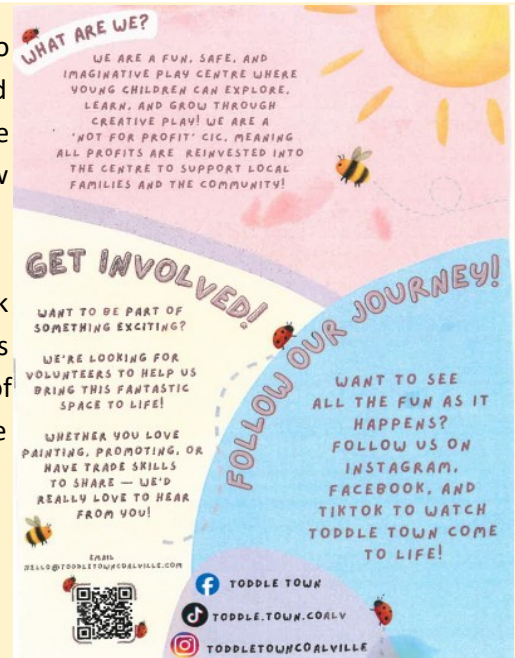 WHAT ARE WE?
WE ARE A FUN, SAFE, AND
IMAGINATIVE PLAY CENTRE WHERE
YOUNG CHILDREN CAN EXPLORE,
LEARN, AND GROW THROUGH
CREATIVE PLAY! WE ARE A
'NOT FOR PROFIT' CIC, MEANING
ALL PROFITS ARE REINVESTED INTO
THE CENTRE TO SUPPORT LOCAL
FAMILIES AND THE COMMUNITY!
GET INVOLVED!
WANT TO BE PART OF
SOMETHING EXCITING?
WE'RE LOOKING FOR
VOLUNTEERS TO HELP US
BRING THIS FANTASTIC
SPACE TO LIFE!
WHETHER YOU LOVE
PAINTING, PROMOTING, OR
HAVE TRADE SKILLS
TO SHARE — WE'D
REALLY LOVE TO HEAR
FROM YOU!
EMAIL
HELLO@TODDLETOWNCOALVILLE.COM
FOLLOW OUR JOURNEY!
WANT TO SEE
ALL THE FUN AS IT
HAPPENS?
FOLLOW US ON
INSTAGRAM,
FACEBOOK, AND
TIKTOK TO WATCH
TODDLE TOWN COME
TO LIFE!
TODDLE TOWN
TODDLE.TOWN.COALV
TODDLETOWNCOALVILLE